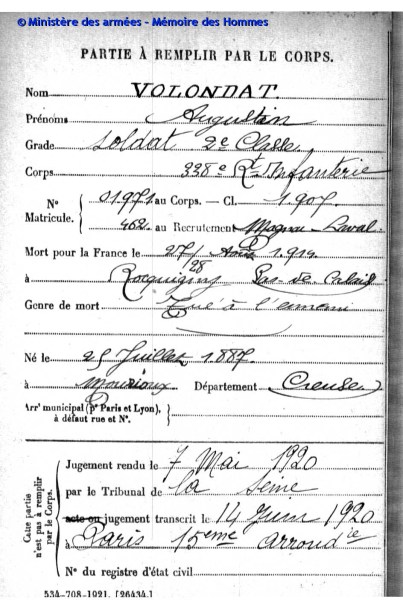 © Ministère des armées - Mémoire des Hommes
PARTIE À REMPLIR PAR LE CORPS.
Nom VOLONDAT.
Prénoms Augustin
Grade Soldat 2e Classe
Corps 338e Rt Infanterie
N° Matricule. 01971 au Corps. - Cl. 1907.
462. au Recrutement Magnac-Laval.
Mort pour la France le 27/28 Août 1914
à Rocquigny Pas-de-Calais
Genre de mort Tué à l'ennemi
Né le 25 Juillet 1887.
à Mourioux Département Creuse
Arrt municipal (pr Paris et Lyon), à défaut rue et N°.
Cette partie n'est pas à remplir par le Corps.
Jugement rendu le 7 Mai 1920
par le Tribunal de la Seine
acte ou jugement transcrit le 14 Juin 1920
à Paris 15eme arrond
N° du registre d'état civil
534-708-1921. [26434.]